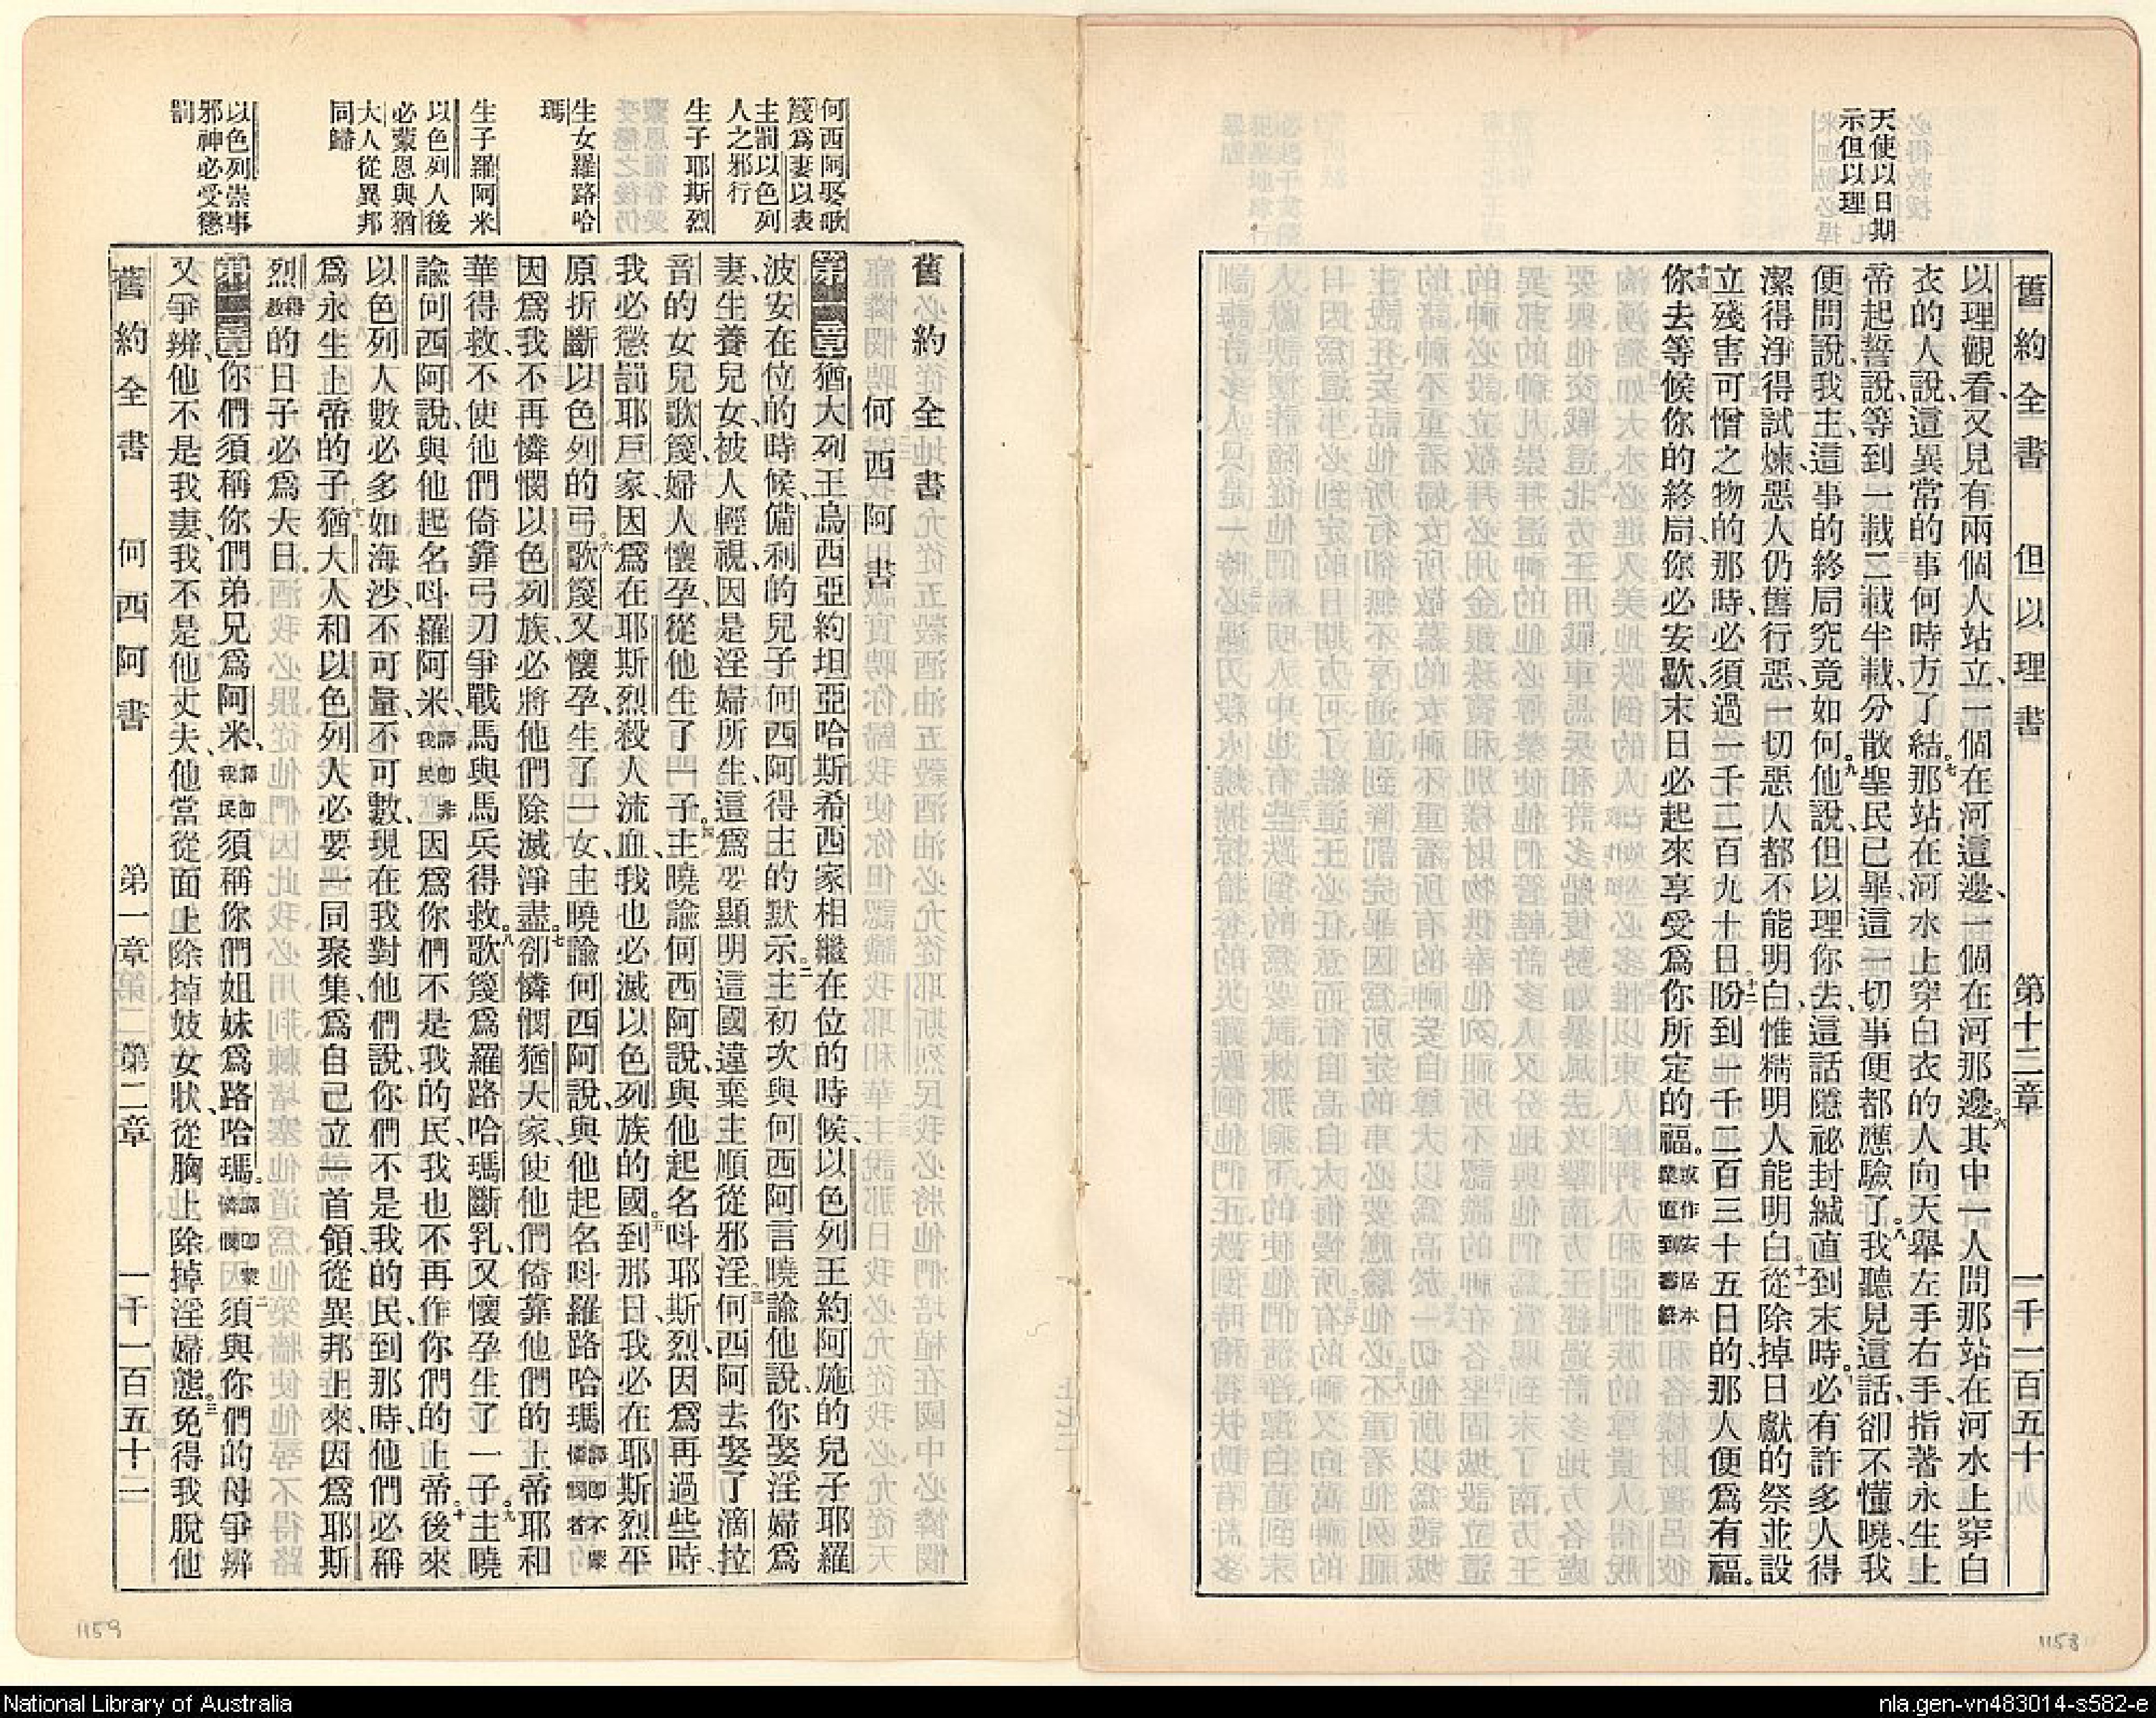 舊約全書 但以理書 第十二章 一千一百五十
天使以日期
示但以理
以理觀看、又見有兩個人站立、一個在河這邊、一個在河那邊。六其中一人問那站在河水上穿白
衣的人說、這異常的事何時方了結。七那站在河水上穿白衣的人向天舉左手右手、指著永生上
帝起誓說、等到一載二載半載、分散聖民已畢、這一切事便都應驗了。八我聽見這話、卻不懂曉、我
便問說、我主、這事的終局究竟如何。九他說、但以理你去、這話隱祕封緘直到末時。十必有許多人得
潔得淨得試煉、惡人仍舊行惡、一切惡人都不能明白、惟精明人能明白。十一從除掉日獻的祭、並設
立殘害可憎之物的那時、必須過一千二百九十日。十二盼到一千三百三十五日的、那人便爲有福。
十三你去等候你的終局、你必安歇、末日必起來享受爲你所定的福。或作安居末業直到暮終
舊約全書
何西阿書
何西阿娶歌
篾爲妻以表
主罰以色列
人之邪行
生子耶斯烈
生女羅路哈
瑪
生子羅阿米
以色列人後
必蒙恩與猶
大人從異邦
同歸
以色列崇事
邪神必受懲
罰
第一章 猶大列王烏西亞約坦亞哈斯希西家相繼在位的時候、以色列王約阿施的兒子耶羅
波安在位的時候、備利的兒子何西阿得主的默示。二主初次與何西阿言、曉諭他說、你娶淫婦爲
妻、生養兒女、被人輕視、因是淫婦所生、這爲要顯明這國違棄主順從邪淫。三何西阿去娶了滴拉
音的女兒歌篾、婦人懷孕、從他生了一子。四主曉諭何西阿說、與他起名呌耶斯烈、因爲再過些時、
我必懲罰耶戶家、因爲在耶斯烈殺人流血、我也必滅以色列族的國。五到那日、我必在耶斯烈平
原折斷以色列的弓。六歌篾又懷孕生了一女、主曉諭何西阿說、與他起名呌羅路哈瑪、譯卽不蒙憐憫者
因爲我不再憐憫以色列族、必將他們除滅淨盡。七卻憐憫猶大家、使他們倚靠他們的上帝耶和
華得救、不使他們倚靠弓刀爭戰馬與馬兵得救。八歌篾爲羅路哈瑪斷乳、又懷孕生了一子。九主曉
諭何西阿說、與他起名呌羅阿米、譯卽非我民因爲你們不是我的民、我也不再作你們的上帝。十後來
以色列人數必多如海沙、不可量、不可數、現在我對他們說、你們不是我的民、到那時、他們必稱
爲永生上帝的子。十一猶大人和以色列人必要一同聚集、爲自己立一首領、從異邦上來、因爲耶斯
烈的日子必爲大日。
第二章 你們須稱你們弟兄爲阿米、譯卽我民須稱你們姐妹爲路哈瑪。譯卽蒙憐憫二須與你們的母爭辨
又爭辨、他不是我妻、我不是他丈夫、他當從面上除掉妓女狀、從胸上除掉淫婦態。三免得我脫他
舊約全書 何西阿書 第一章 第二章 一千一百五十二
1159
1158
National Library of Australia
nla.gen-vn483014-s582-e